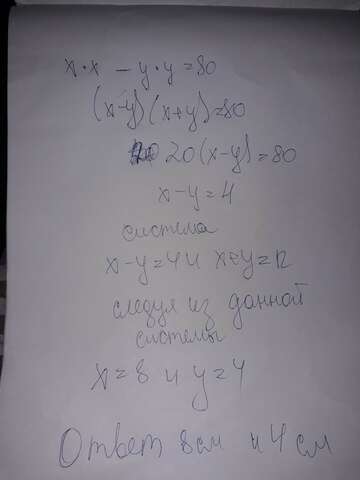 x·x - y·y=80
(x-y)(x+y)=80
20(x-y)=80
x-y=4
система
x-y=4 и x+y=12
следуя из данной
системы
x=8 и y=4
Ответ 8см и 4 см